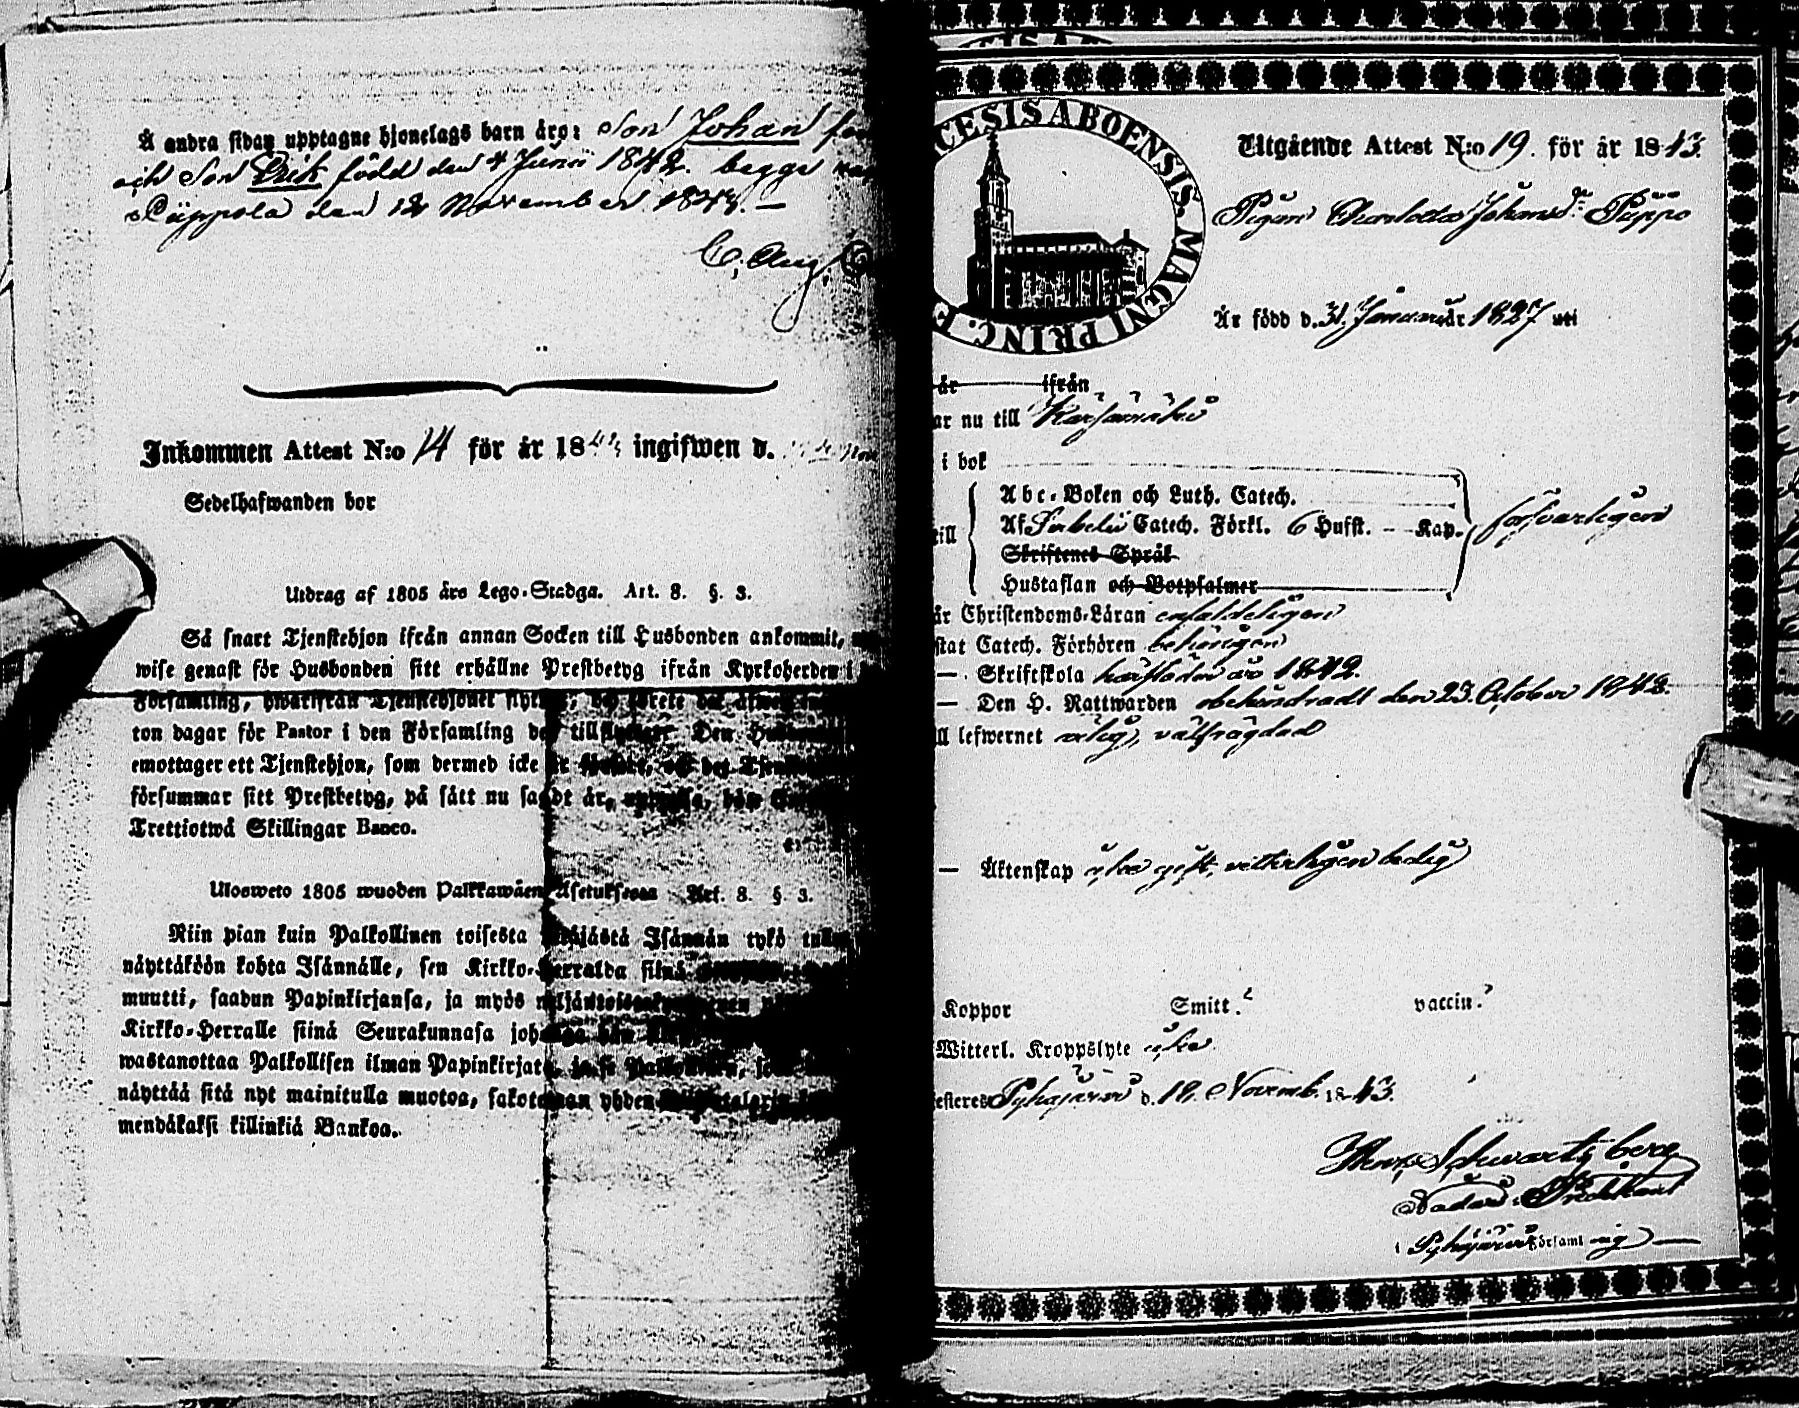 Å andra sidan upptagne hjonelags barn äro: Son Johan
och Son Erik född den 4 Junii 1842. begge
Püppola den 12 November 1843. —
C. Aug.
Inkommen Attest N:o 14 för år 1843 ingifwen d.
Sedelhafwanden bor
Utdrag af 1805 års Lego-Stadga. Art. 8. §. 3.
Så snart Tjenstehjon ifrån annan Socken till Husbonden ankommit,
wise genast för Husbonden sitt erhållne Prestbetyg ifrån Kyrkoherden i
Församling, hwarifrån Tjenstehjonet flyttat,
ton dagar för Pastor i den Församling
emottager ett Tjenstehjon, som dermed icke är
försummar sitt Prestbetyg, på sätt nu sagdt är,
Trettiotwå Skillingar Banco.
Ulosweto 1805 wuoden Palkkawäen Asetuksesta Art. 8. §. 3.
Niin pian kuin Palkollinen toisesta Pitäjästä Isännän tykö
näyttäköön kohta Isännälle, sen Kirkko-Herralda siinä
muutti, saadun Papinkirjansa, ja myös
Kirkko-Herralle siinä Seurakunnasa
wastanottaa Palkollisen ilman Papinkirjata,
näyttää sitä nyt mainitulla muotoa, sakotetaan yhden
mendäkaksi killinkiä Bankoa.
CESIS ABOENSIS. MAGNI PRINC. F
Utgående Attest N:o 19. för år 1843.
Pigan Charlotta Johansdr Püppo
Är född d. 31 Januarii år 1827 uti
år ifrån
ar nu till Kärsämäki
i bok
Abc-Boken och Luth. Catech.
till Af Sebelii Catech. Förkl. 6 Hufst. — Kap. försvarligen
Skriftenes Språk
Hustaflan och Botpsalmer
är Christendoms-Läran enfaldeligen
stat Catech. Förhören behörigen
— Skriftskola härstädes år 1842.
— Den H. Nattwarden obehindradt den 23. October 1843.
ll lefwernet ärlig, välfrägdad
— Äktenskap icke gift, vitterligen ledig
Koppor Smitt. vaccin.
Witterl. Kroppslyte icke
esteres Pyhäjärvi d. 12. Novemb. 1843.
Schwartzberg
Sådan: Predikant
i Pyhäjärvi Församling —